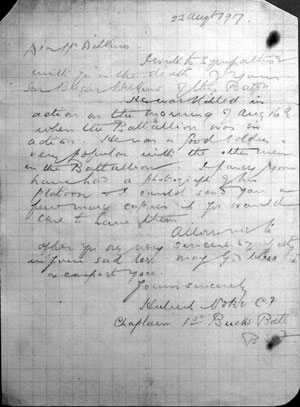 22 Augt 1917.
Dear Mr
I write to sympathise
with you in the death of yours
son of this Batt
He was killed in
action on the morning of Aug 16th
when the Battallion was in
action. He was a good soldier
very popular with the other men
in the Battallion. I you
have had a photograph of his
platoon & I could send you a
few more copies if you would
care to have them.
Allow me to
offer you my very sincere sympathy
in your sad loss may God bless
& comfort you.
Yours sincerely
Hubert C.F.
Chaplain 1st Bucks Batt
B.E.F.